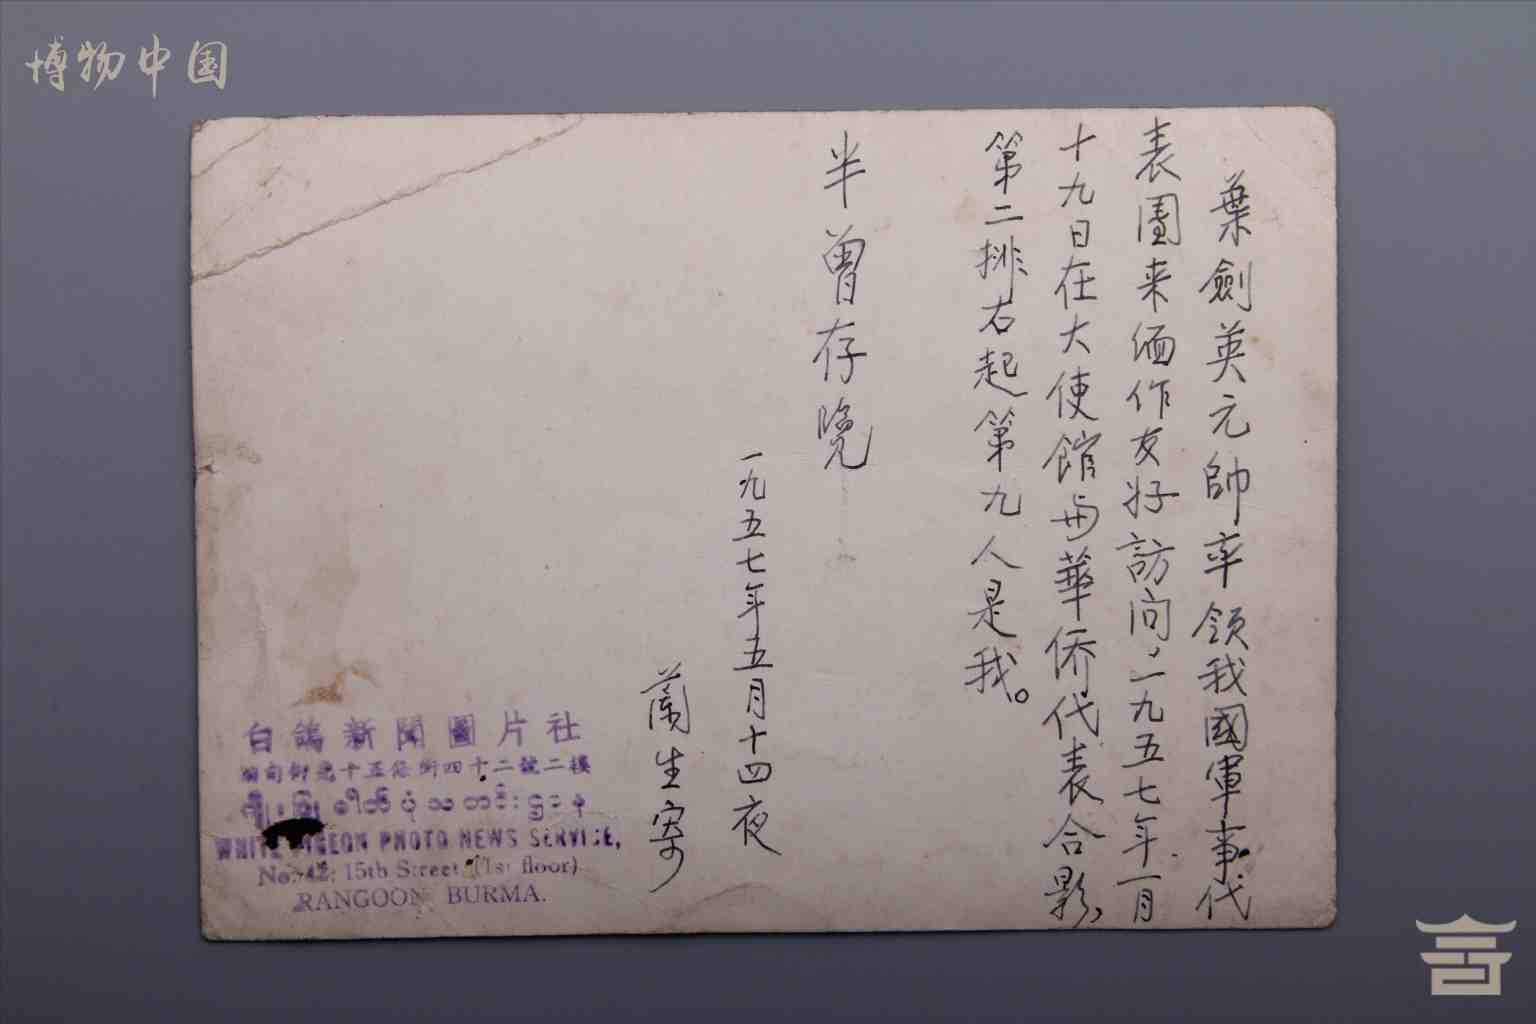 博物中国
葉劍英元帥率领我國軍事代
表團来缅作友好訪问，一九五七年一月
十九日在大使館与華侨代表合影，
第二排右起第九人是我。
半曾存覽
一九五七年五月十四夜
蘭生寄
白鴿新聞圖片社
緬甸仰光十五条街四十二號二樓
WHITE PIGEON PHOTO NEWS SERVICE,
No. 42, 15th Street (1st floor)
RANGOON BURMA.